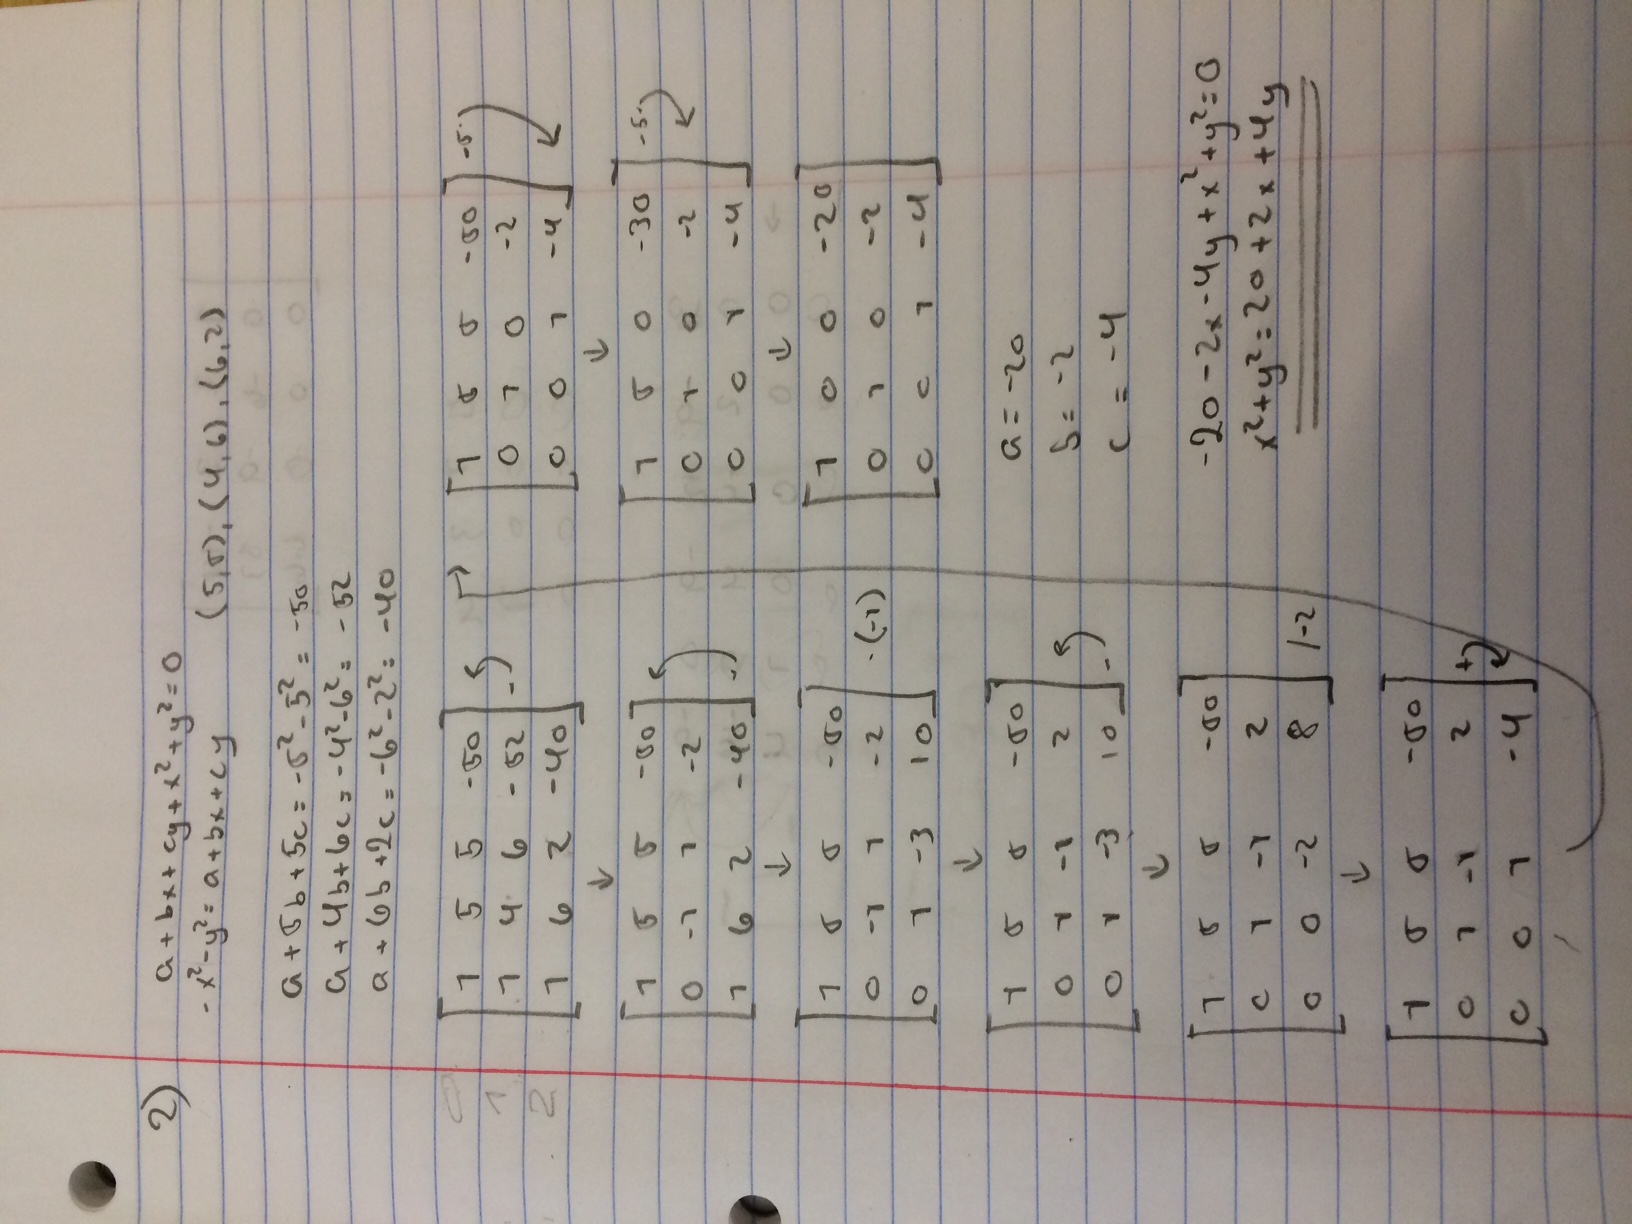 2)
a + bx + cy + x² + y² = 0
-x² - y² = a + bx + cy (5,5), (4,6), (6,2)
a + 5b + 5c = -5² - 5² = -50
a + 4b + 6c = -4² - 6² = -52
a + 6b + 2c = -6² - 2² = -40
0
1
2
1 5 5 -50
1 4 6 -52 -
1 6 2 -40
↓
1 5 5 -50
0 -1 1 -2
1 6 2 -40 -
↓
1 5 5 -50
0 -1 1 -2 ·(-1)
0 1 -3 10
↓
1 5 5 -50
0 1 -1 2
0 1 -3 10 -
↓
1 5 5 -50
0 1 -1 2
0 0 -2 8 /-2
↓
1 5 5 -50
0 1 -1 2 +
0 0 1 -4
→
1 5 5 -50 -5·
0 1 0 -2
0 0 1 -4
↓
1 5 0 -30 -5·
0 1 0 -2
0 0 1 -4
↓
1 0 0 -20
0 1 0 -2
0 0 1 -4
a = -20
b = -2
c = -4
-20 - 2x - 4y + x² + y² = 0
x² + y² = 20 + 2x + 4y